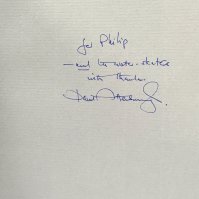 for Philip
– and the water-skater
with thanks.